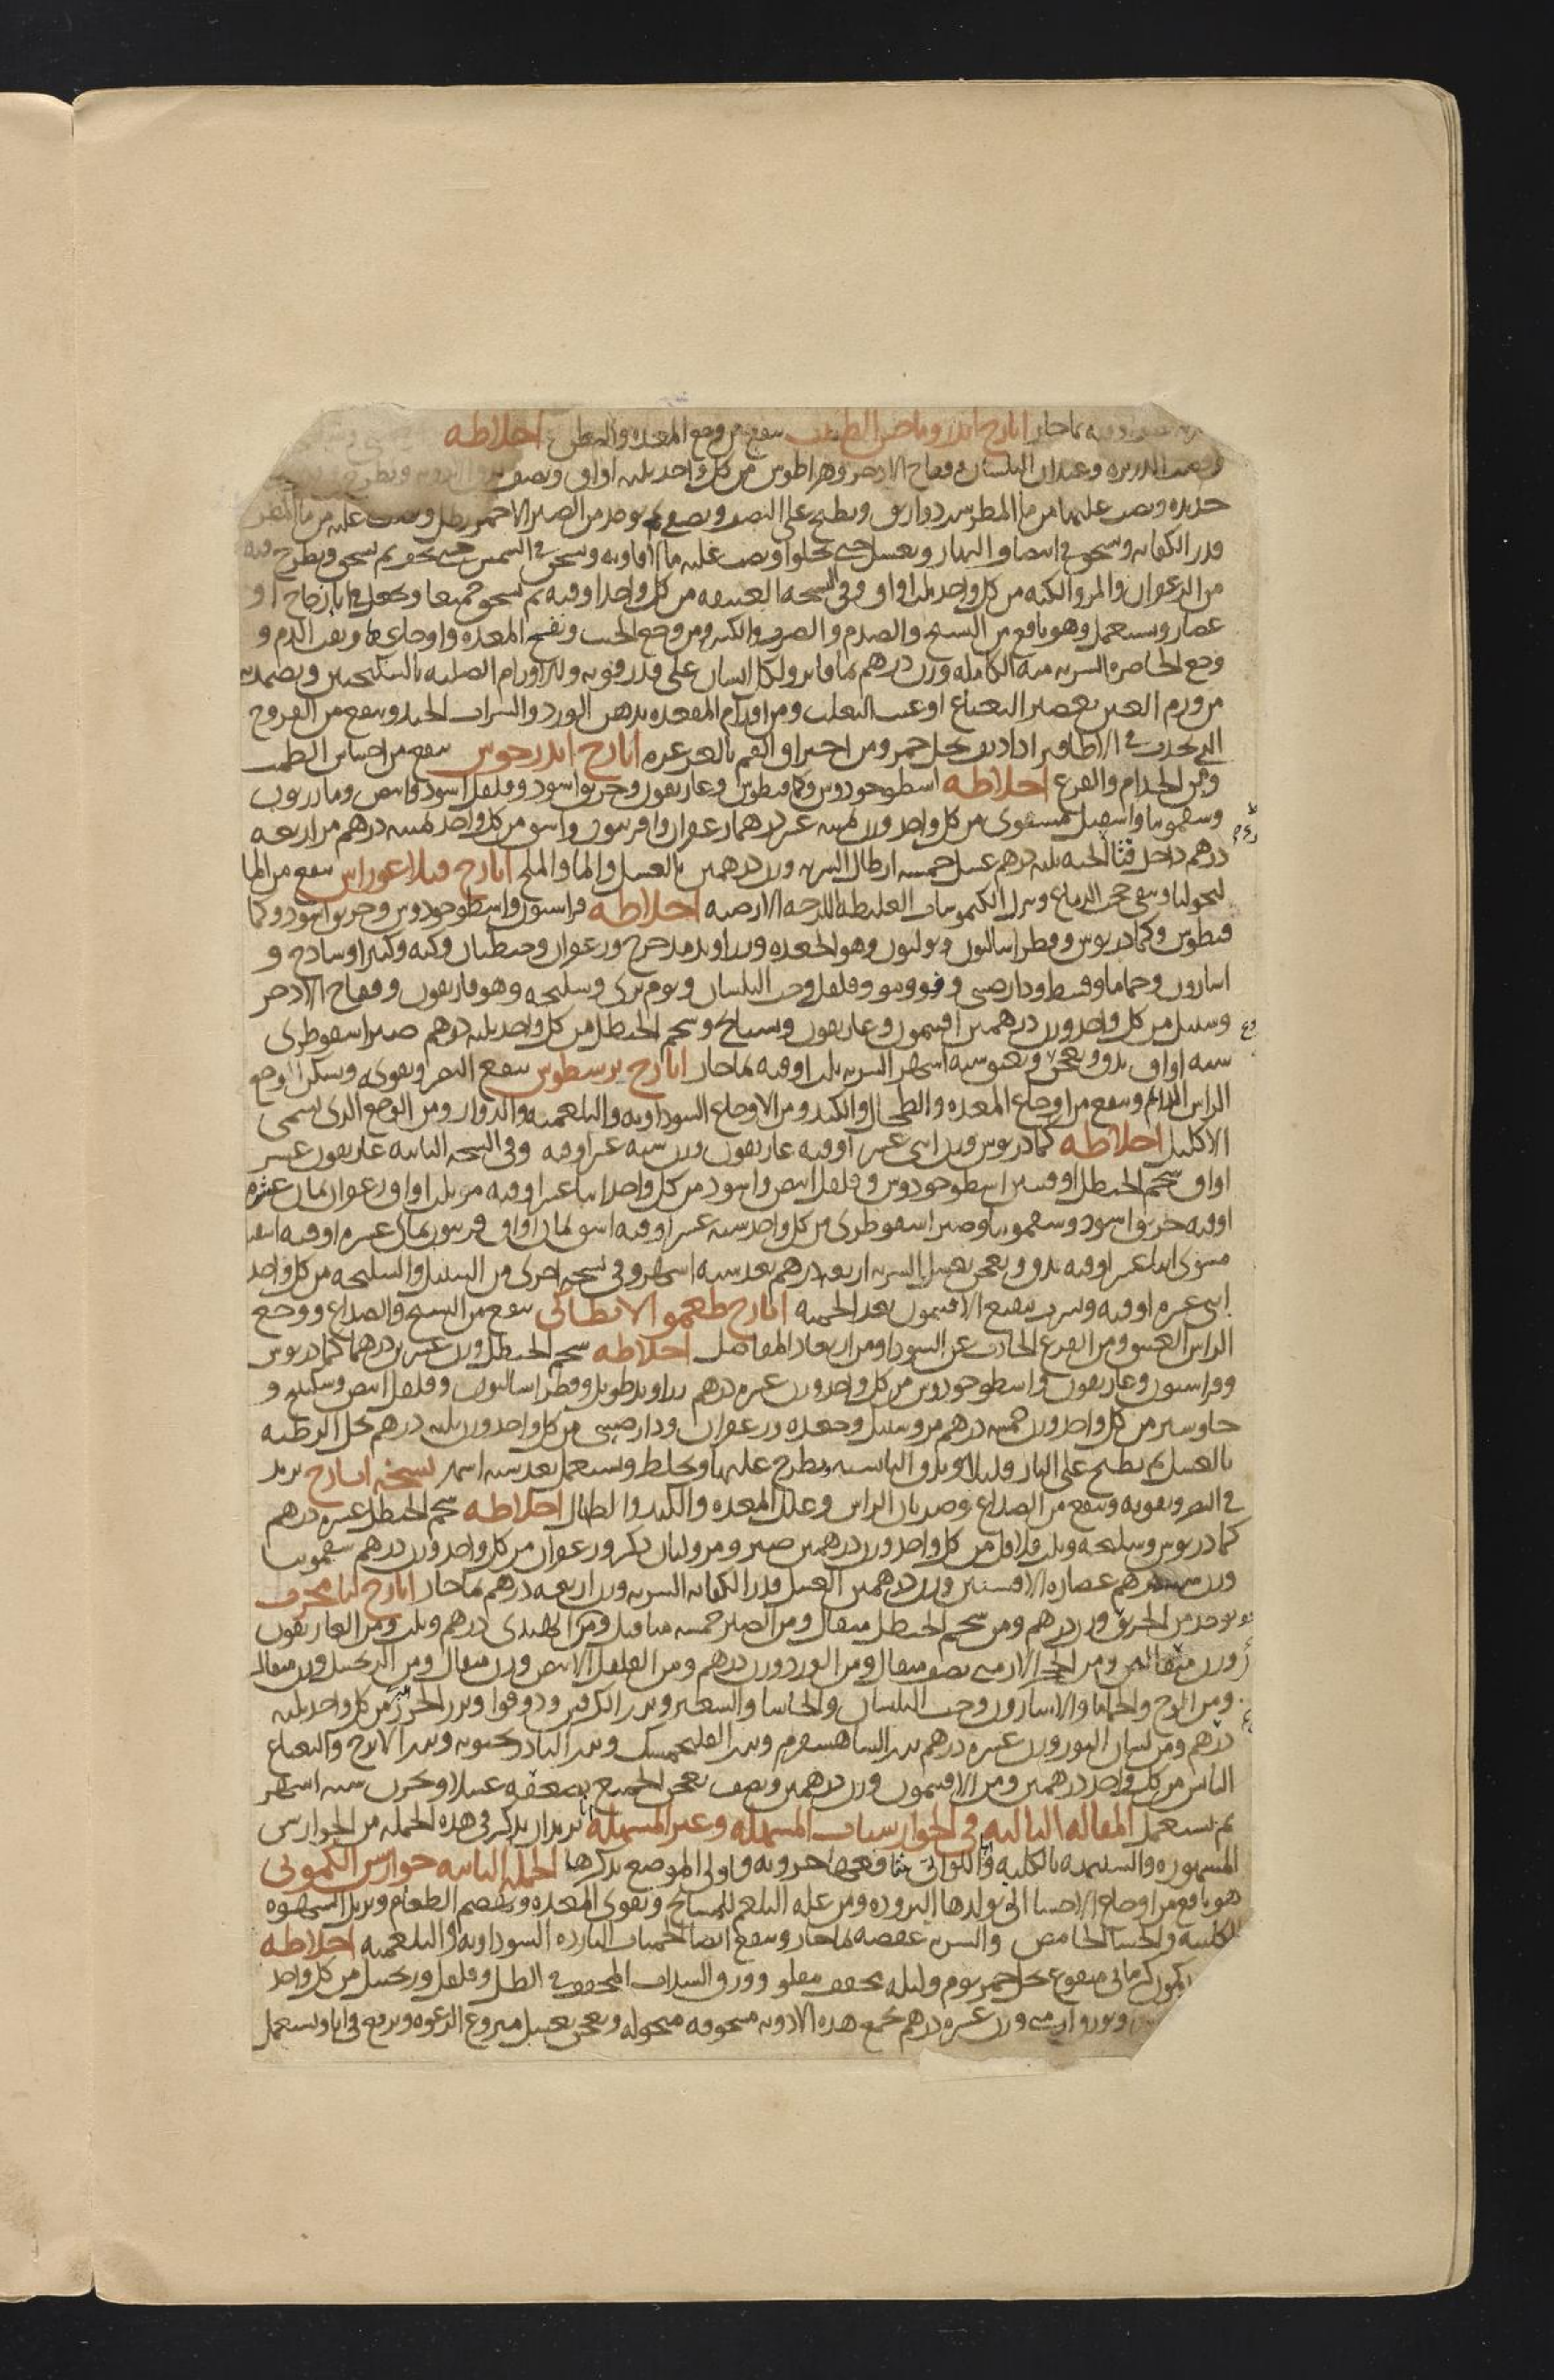 بماحار ايارح اندروماخس الطبيب ينفع من وجع المعده والطحال اخلاطه
وقصب الدريره وعيدان البلسان وفقاح الادخر من كل واحد ثلثه اواق ونصف
ونصب عليها من ما المطر ويطبخ على النصف ويصفى ثم يوخذ من الصبر الاحمر رطل ويصب عليه من ما المطر
قدر الكفايه ويسحق في الصلا والنهار ويغسل حتى يحلوا ويصب عليه ما الافاويه ويسحق في الشمس حتى يجف ثم يسحق ويطرح فيه
من الزعفران والمر والكيه من كل واحد ثلث اواق وفي النسخه العتيقه من كل واحد اوقيه ثم يسحق جميعا ويجعل في انا زجاج او
غضار ويستعمل وهو نافع من الفسخ والصدم والضرب والكسر ومن وجع الجنب ونفخ المعده واوجاعها ونفث الدم و
وجع الخاصره الشربه منه الكامله وزن درهم بما فاتر ولكل انسان على قدر قوته وللاورام الصلبه بالسكنجبين ويضمد به
من ورم العين بعصير النعناع او عنب الثعلب ومن اورام المقعده بدهن الورد والشراب الجيد وينفع من القروح
التي تحدث في الاظافير اذا ديف بخل خمر ومن احتراق الفم بالغرغره ايارح اندرحوس ينفع من احتباس الطمث
ومن الجذام والقرع اخلاطه اسطوخودوس وكمافيطوس وغاريقون وخربق اسود وفلفل اسود وابيض ومازريون
وسقمونيا واسقيل مشوي من كل واحد وزن ثمنيه عشر درهما زعفران وافربيون واشق من كل واحد ثمنيه درهم مر اربعه
درهم داخل قثا الحيه ثلثه درهم عسل خمسه ارطال الشربه وزن درهمين بالعسل والما والملح ايارح فيلاغوراس ينفع من الما
لنخوليا وينقي حجب الدماغ وينزل الكيموسات الغليظه اللزجه الارضيه اخلاطه فراسيون واسطوخودوس وخربق اسود وكما
فيطوس وكمادريوس وفطراساليون وبوليون وهو الجعده وزراوند مدحرج وزعفران وجنطيان وكيه وكثيرا وسادج و
اسارون وحماما وقسط ودارصيني وفو ومو وفلفل وحب البلسان وثوم بري وسليخه وهوفاريقون وفقاح الادخر
وسنبل من كل واحد وزن درهمين افتيمون وغاريقون وبسبايج وشحم الحنظل من كل واحد ثلثه درهم صبر اسقوطري
سته اواق يدق ويعجن ويعتق سته اشهر الشربه ثلث اوقيه بما حار ايارح يرسطوس ينفع البصر ويقويه ويسكن اوجع
الراس الدايم وينفع من اوجاع المعده والطحال والكبد ومن الاوجاع السوداويه والبلغميه والدوار ومن الوجع الذي يسمى
الاكليل اخلاطه كمادريوس وزن اثني عشر اوقيه غاريقون وزن سته عشر اوقيه وفي النسخه الثانيه غاريقون عشر
اواق شحم الحنظل اوقيتين اسطوخودوس وفلفل ابيض واسود من كل واحد اثنا عشر اوقيه مر ثلث اواق زعفران ثمان عشره
اوقيه خربق اسود وسقمونيا وصبر اسقوطري من كل واحد سته عشر اوقيه اشق ثمان اواق فربيون ثماني عشره اوقيه اسقيل
مشوي اثنا عشر اوقيه يدق ويعجن بعسل الشربه اربعه درهم بعد سته اشهر وفي نسخه اخرى من السنبل والسليخه من كل واحد
اثني عشره اوقيه ويشرب بنقيع الافتيمون بعد الحميه ايارح طعمو الانطاكي ينفع من الفسخ والصداع ووجع
الراس العتيق ومن القرع الحادث عن السودا ومن ارتعاد المفاصل اخلاطه شحم الحنظل وزن عشرين درهما كمادريوس
وفراسيون وغاريقون واسطوخودوس من كل واحد وزن عشره درهم زراوند طويل وفطراساليون وفلفل ابيض وسكبينج و
جاوشير من كل واحد وزن خمسه درهم مر وسنبل وجعده وزعفران ودارصيني من كل واحد وزن ثلثه درهم تحل الرطبه
بالعسل ثم يطبخ على النار قليلا ويدق اليابسه ويطرح عليها ويخلط ويستعمل بعد سته اشهر نسخه ايارح يزيد
في البصر ويقويه وينفع من الصداع وضربان الراس وعلل المعده والكبد والطحال اخلاطه شحم الحنظل عشره درهم
كمادريوس وسليخه وثلث فلافل من كل واحد وزن درهمين صبر ومر ولبان ذكر وزعفران من كل واحد وزن درهم سقمونيا
وزن درهم عصاره الافسنتين وزن درهمين العسل قدر الكفايه الشربه وزن اربعه درهم بما حار ايارح لنا مجرب
يوخذ من الخربق وزن درهم ومن شحم الحنظل مثقال ومن الصبر خمسه مثاقيل ومن الهندي درهم وثلث ومن الغاريقون
وزن مثقالين ومن الحجر الارمني نصف مثقال ومن الورد وزن درهم ومن الفلفل الابيض وزن مثقال ومن الزنجبيل وزن مثقال
ومن الوج والحماما والاسارون وحب البلسان والحاشا والسعتر وبزر الكرفس ودوقوا وبزر الجزر من كل واحد ثلثه
درهم ومن لسان الثور وزن عشره درهم بزر الشاهسفرم وبزر الفلنجمشك وبزر البادرنجبويه وبزر الاترج والنعناع
اليابس من كل واحد درهمين ومن الافتيمون وزن درهمين ونصف يعجن الجميع بضعفه عسلا ويخزن سته اشهر
ثم يستعمل المقاله الثالثه في الجوارسنات المسهله وغير المسهله انا نريد ان نذكر في هذه الجمله من الجوارس
المشهوره والشبيهه بالكليه واما اللواتي منافعها جزويه فاولى المواضع بذكرها الجمله الثانيه جوارس الكموني
هو نافع من اوجاع الاحشا التي يولدها البروده ومن علله البلغم للمسايح ويقوي المعده ويهضم الطعام ويزيل الشهوه
الكلبيه والجشا الحامض والشربه عفصه بما حار وينفع ايضا الحميات البارده السوداويه والبلغميه اخلاطه
كمون كرماني منقوع بخل خمر يوم وليله مجفف مقلو وورق السداب المجفف في الظل وفلفل وزنجبيل من كل واحد
وبورق ارمني وزن عشره درهم تجمع هذه الادويه مسحوقه منخوله ويعجن بعسل منزوع الرغوه ويرفع في انا ويستعمل